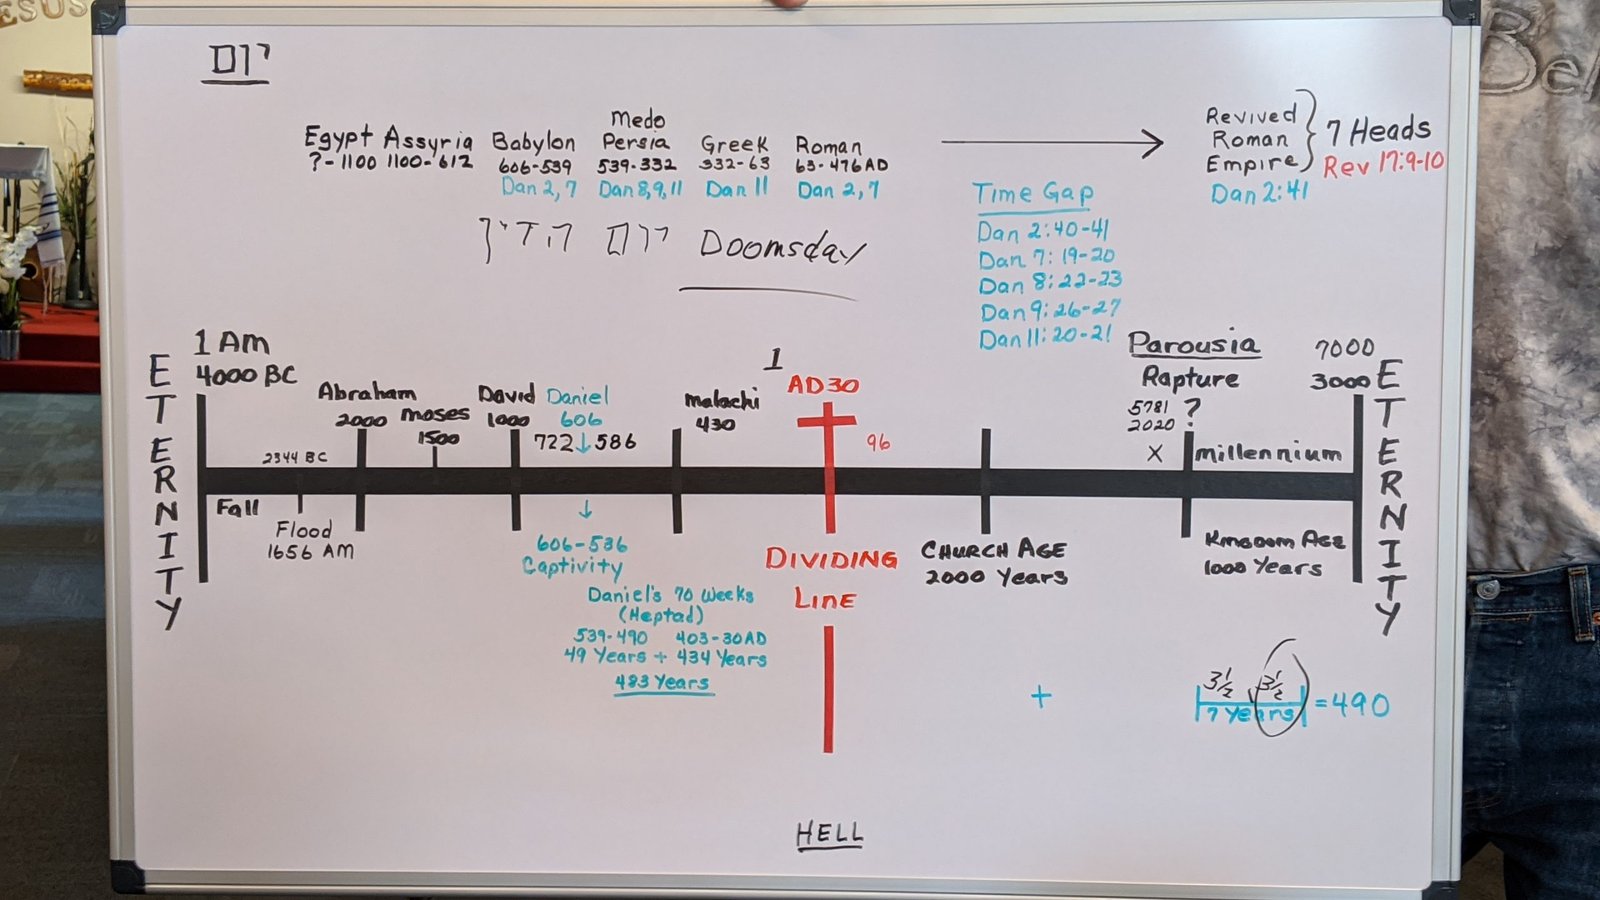 ESUS
Bel
םוי
Egypt
?-1100
Assyria
1100-612
Babylon
606-539
Dan 2,7
Medo
Persia
539-332
Dan 8,9,11
Greek
332-63
Dan 11
Roman
63-476AD
Dan 2,7
Revived
Roman
Empire
Dan 2:41
7 Heads
Rev 17:9-10
Doomsday
Time Gap
Dan 2:40-41
Dan 7:19-20
Dan 8:22-23
Dan 9:26-27
Dan 11:20-21
ETERNITY
1 Am
4000 BC
Fall
2344 BC
Flood
1656 AM
Abraham
2000
moses
1500
David
1000
Daniel
606
722↓586
↓
606-536
Captivity
Daniel's 70 Weeks
(Heptad)
539-490 403-30AD
49 Years + 434 Years
483 Years
malachi
430
1
AD30
96
DIVIDING
LINE
HELL
CHURCH AGE
2000 Years
Parousia
Rapture
5781 ?
2020
X
millennium
Kingdom AGE
1000 Years
7000
3000
ETERNITY
+
3½ 3½
7 Years
=490